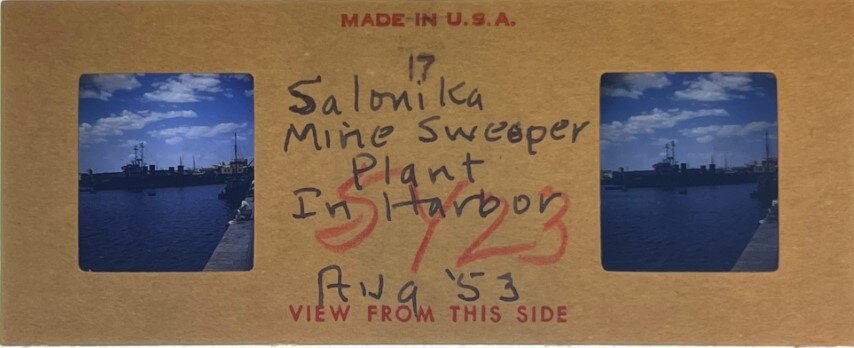 MADE IN U.S.A.
17
Salonika
Mine Sweeper
Plant
In Harbor
5Y23
Aug '53
VIEW FROM THIS SIDE